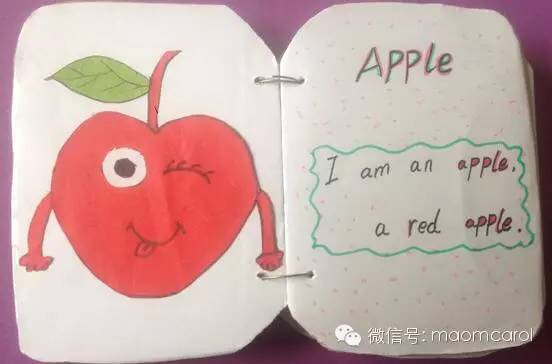 Apple
I am an apple,
a red apple.
微信号: maomcarol